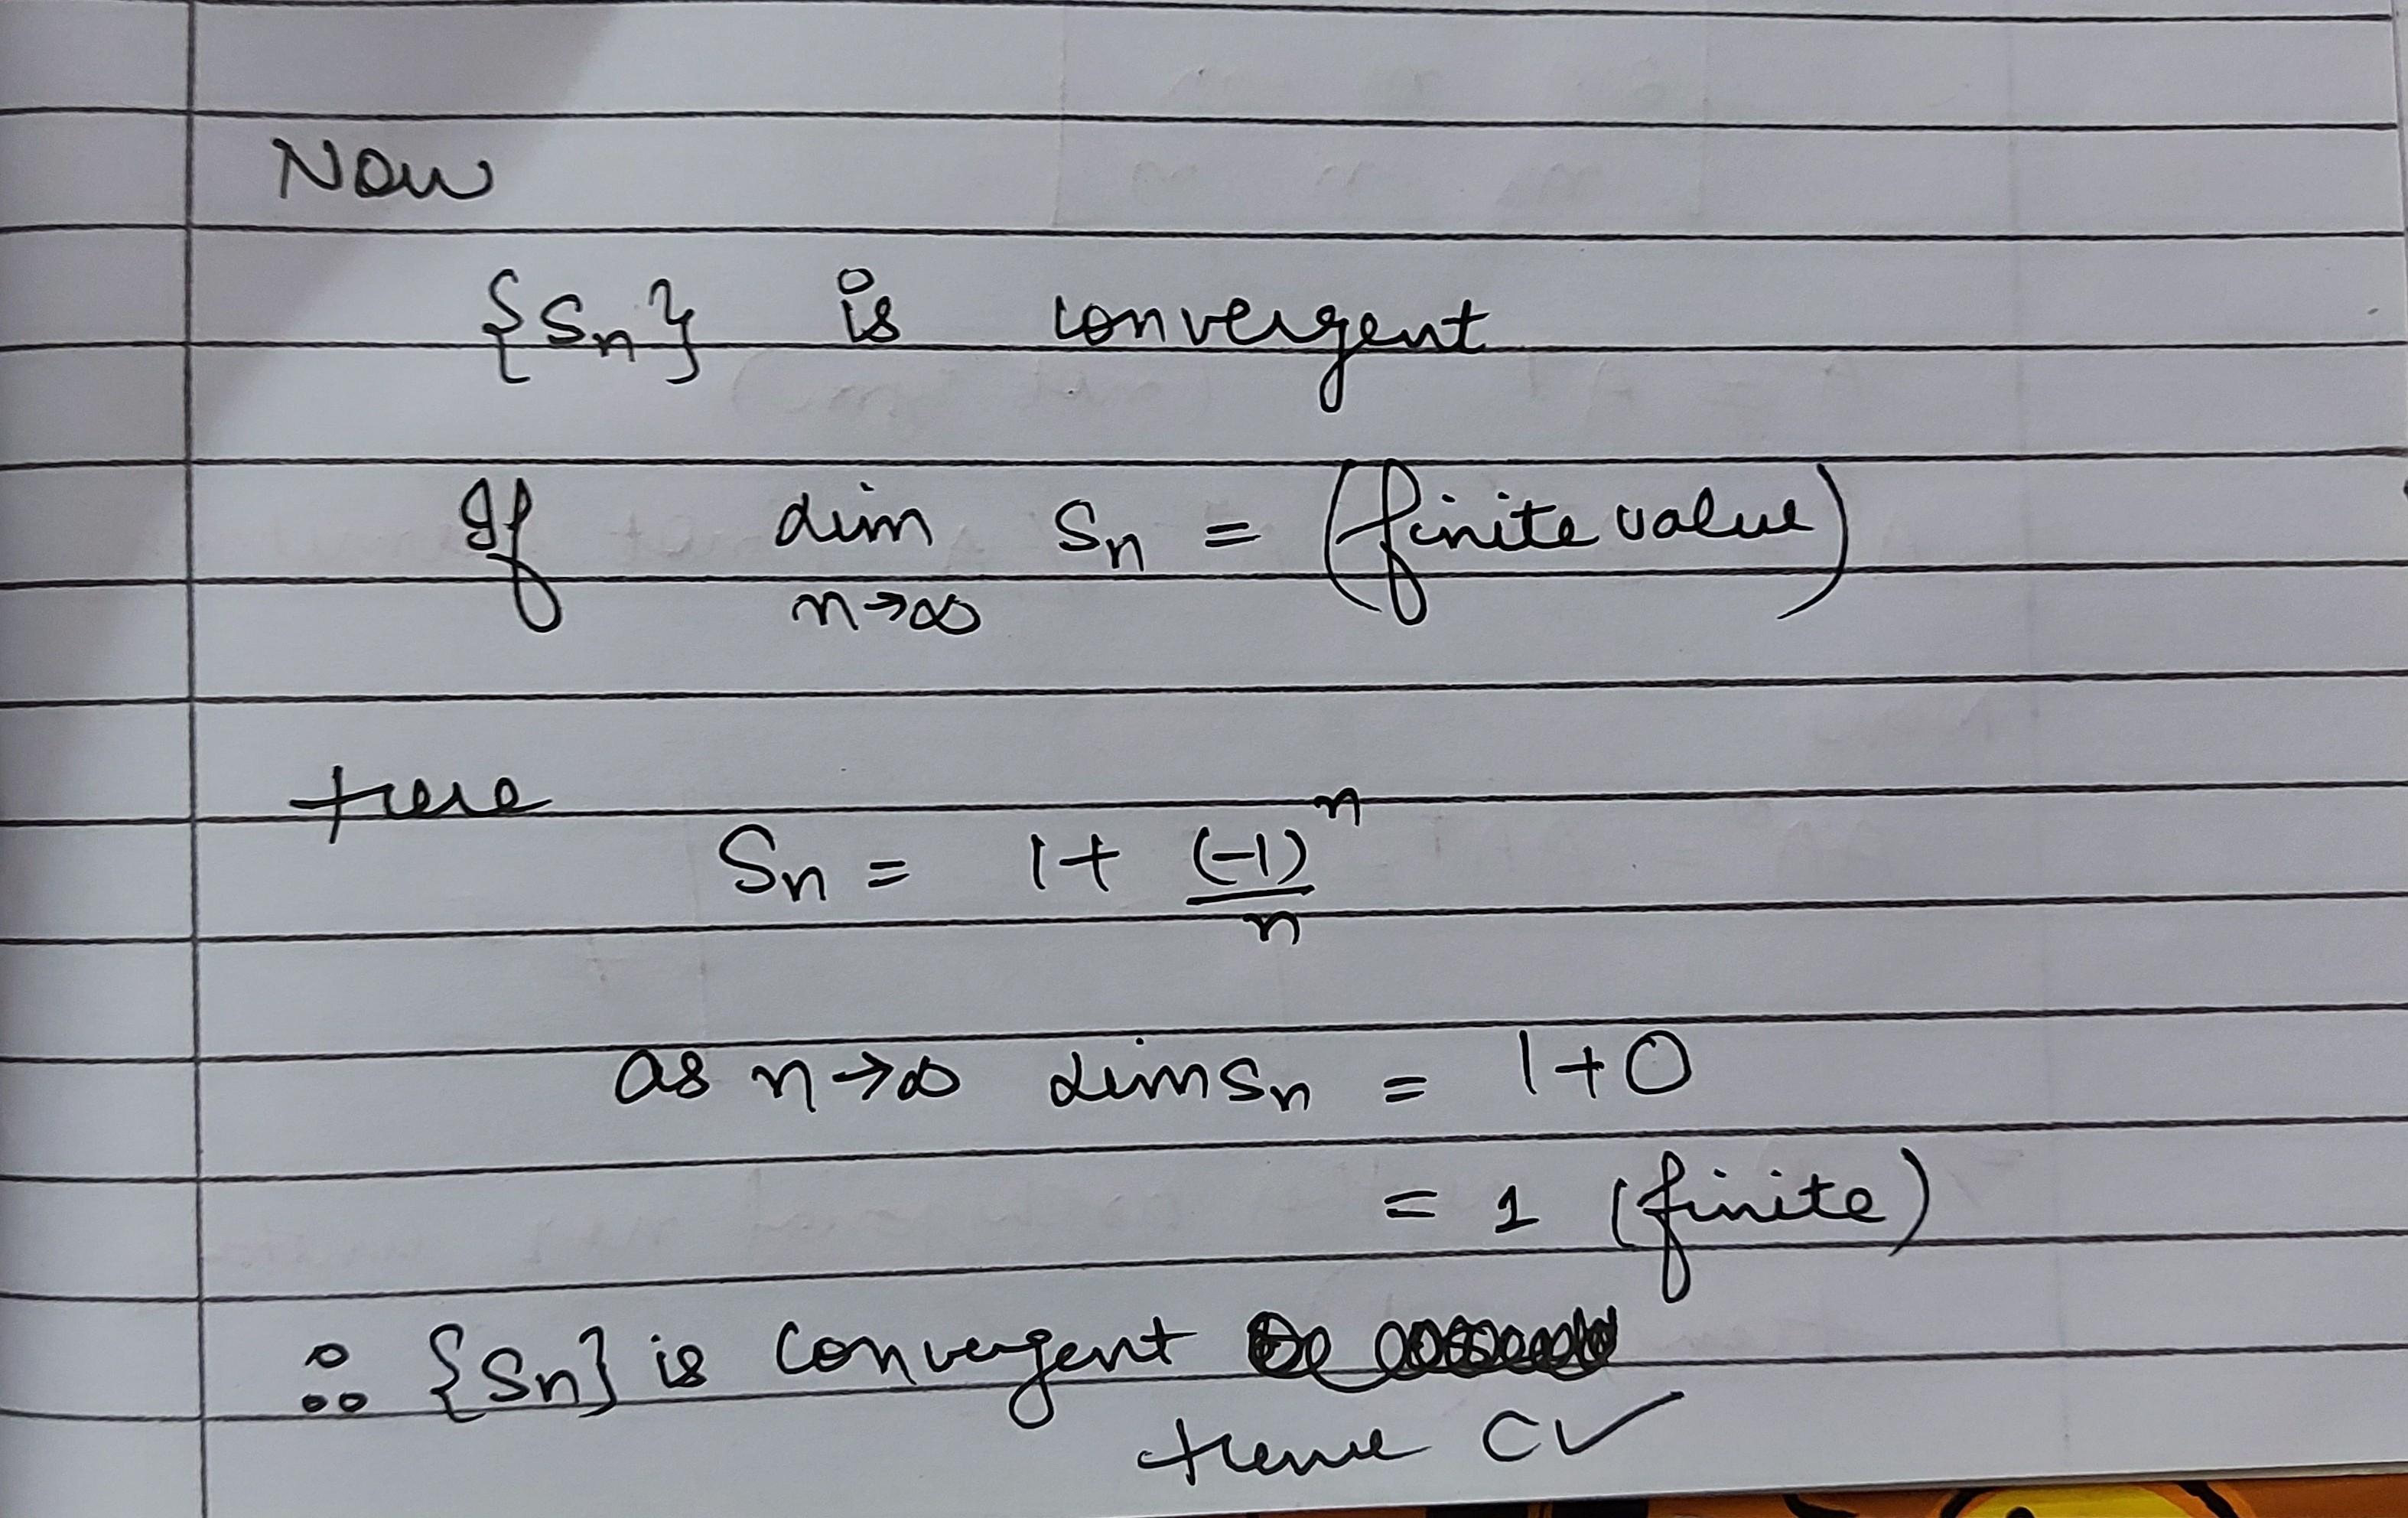 Now
{Sn} is convergent
If lim Sn = (finite value)
n→∞
Here
Sn = 1 + (-1)^n
n
as n→∞ lim Sn = 1+0
= 1 (finite)
∴ {Sn} is convergent
Hence C✓